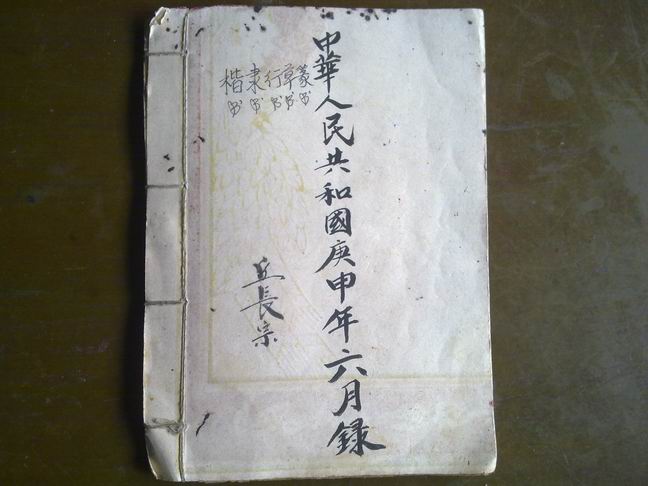 中華人民共和國庚申年六月錄
楷隶行草篆
书书书书书
丘長宗